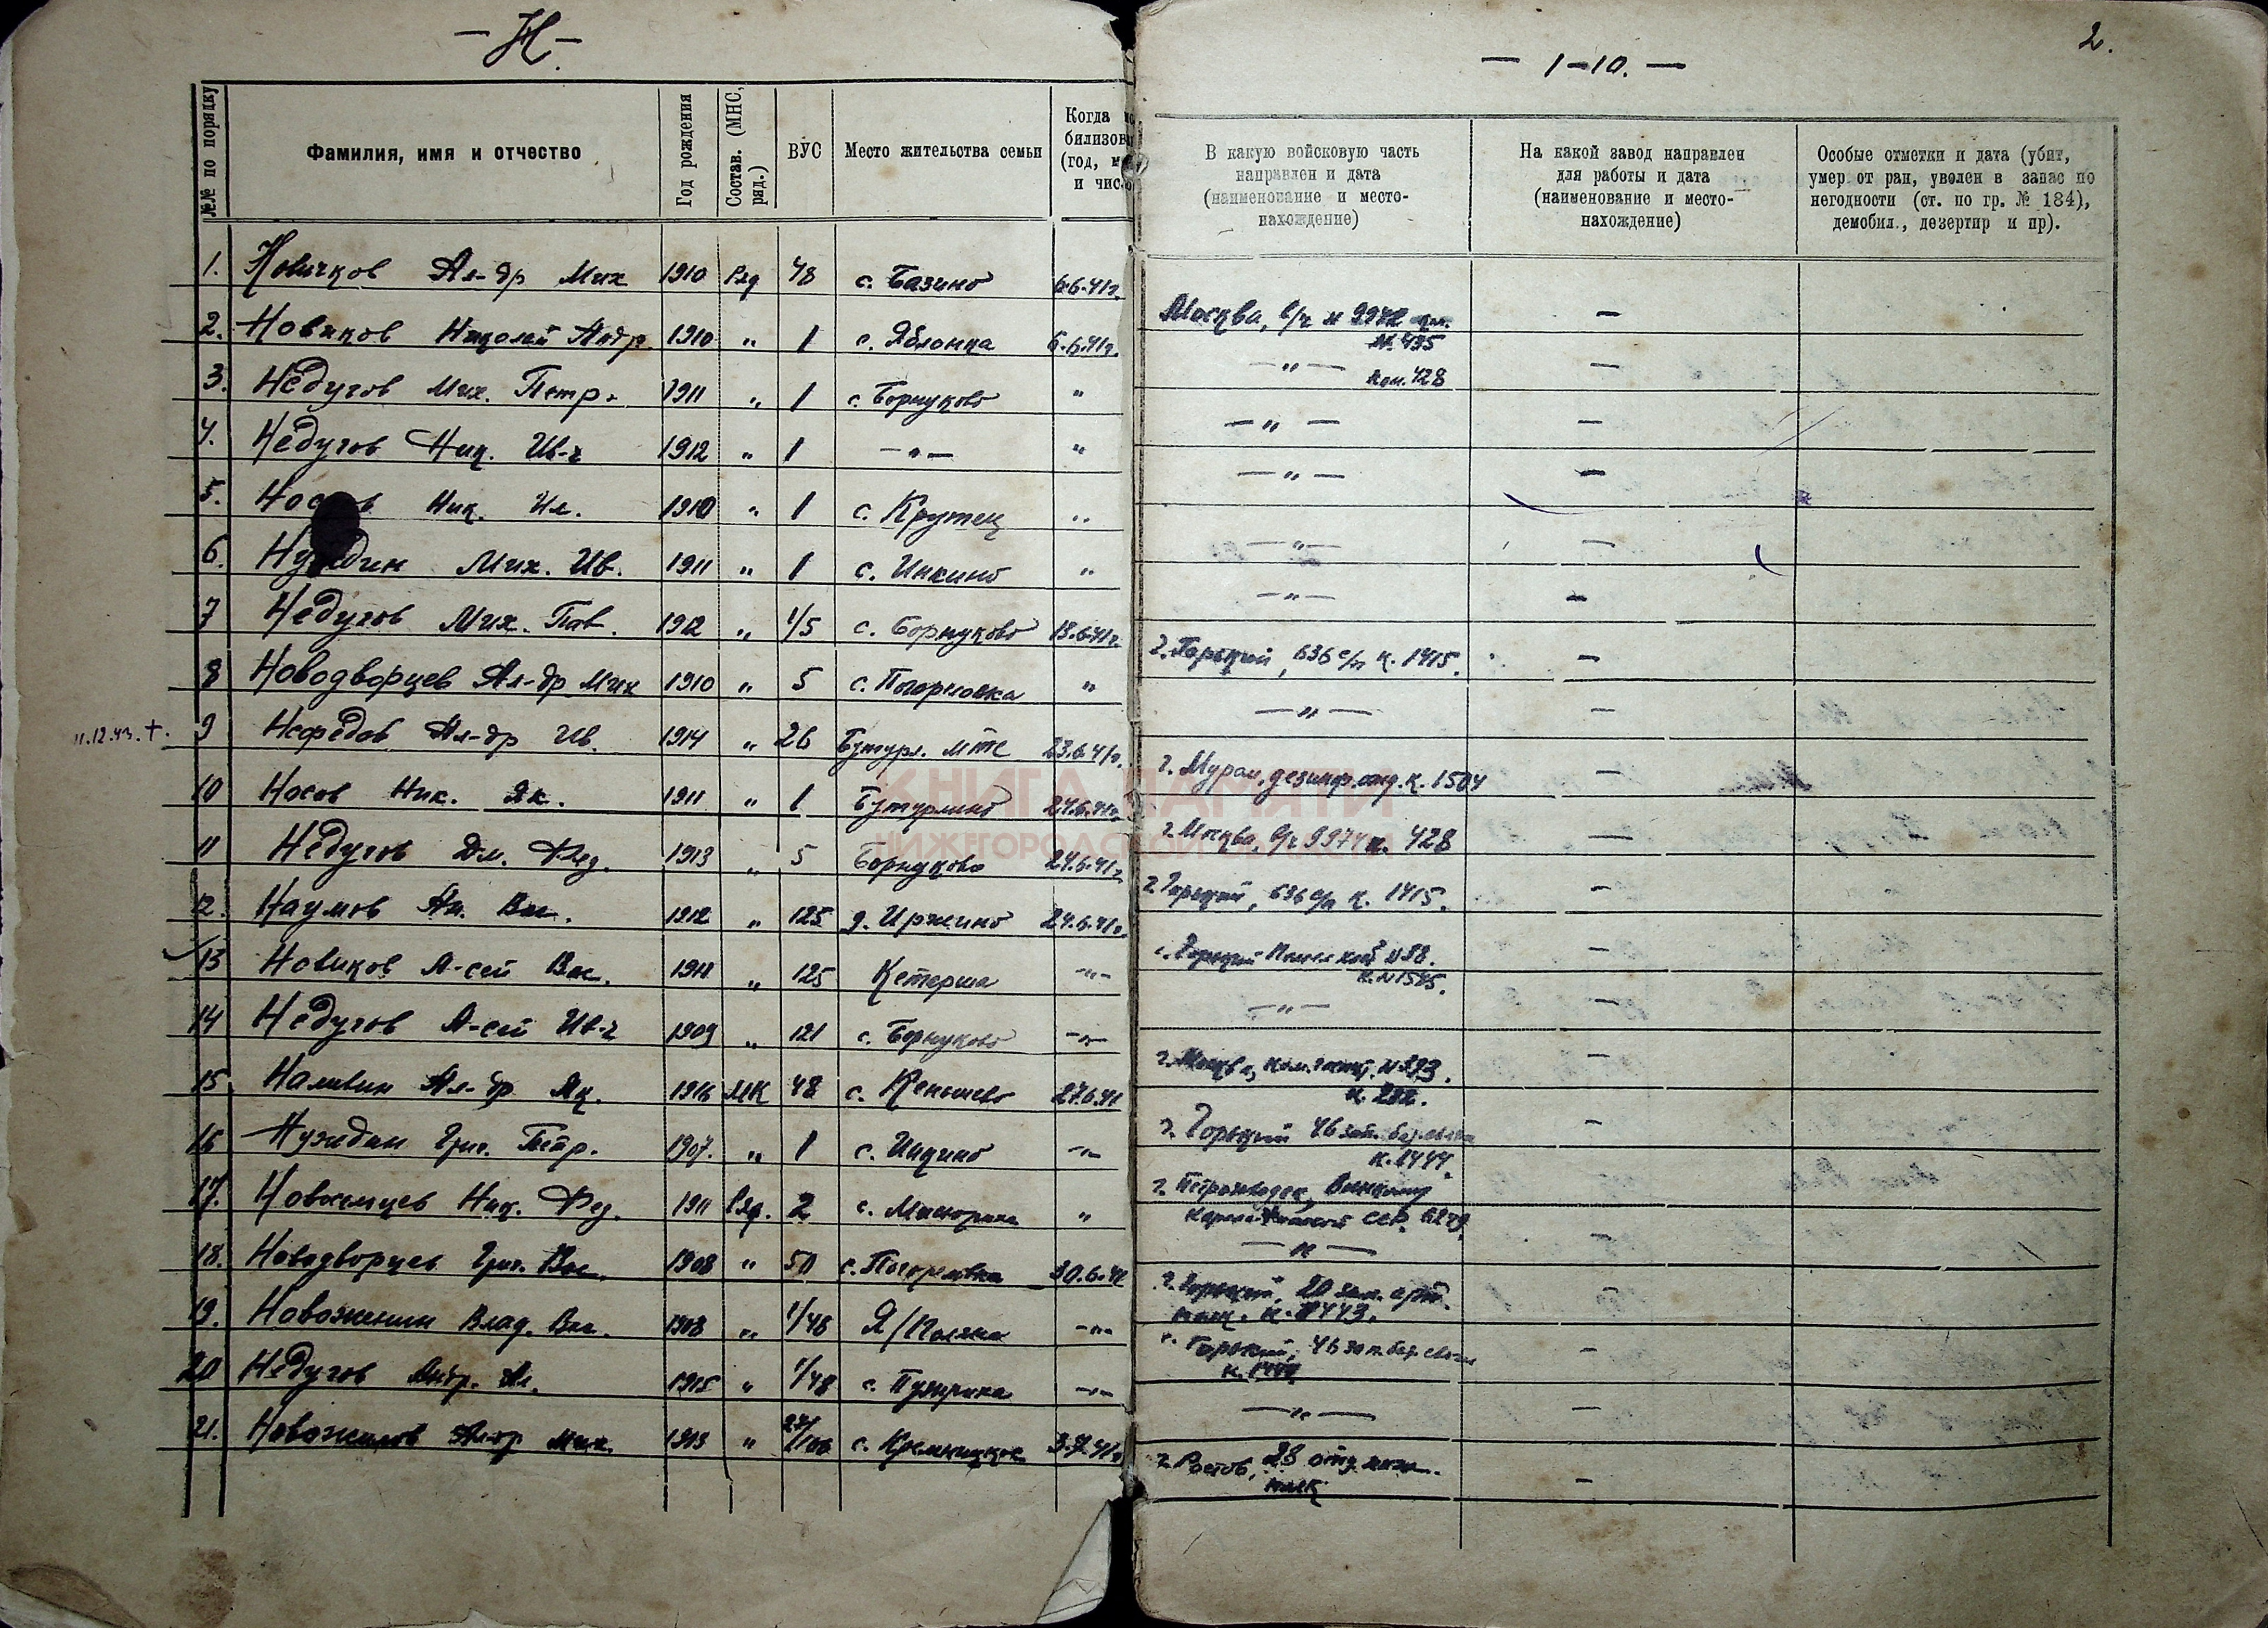 — Н. —
№№ по порядку
Фамилия, имя и отчество
Год рождения
Состав. (МНС, ряд.)
ВУС
Место жительства семьи
Когда
билизов
(год,
и чис
1. Новичков Ал-др Мих 1910 Ряд 48 с. Базино 6.6.41г.
2. Новиков Николай Андр. 1910 " 1 с. Яблонка 6.6.41г.
3. Недугов Мих. Петр. 1911 " 1 с. Борнуково "
4. Недугов Ник. Ив-ч 1912 " 1 — " — "
5. Ник. Ил. 1910 " 1 с. Крутец "
6. Мих. Ив. 1911 " 1 с. Инкино "
7 Недугов Мих. Пав. 1912 " 1/5 с. Борнуково 18.6.41г.
8 Новодворцев Ал-др Мих 1910 " 5 с. Погорловка "
11.12.43. + 9 Нефедов Ал-др Ив. 1914 " 26 Бутурл. МТС 23.6.41г.
10 Носов Ник. Як. 1911 " 1 Бутурлино 24.6.41г.
11 Недугов Дм. Фед. 1913 " 5 Борнуково 24.6.41г.
12. Наумов Ал. Вас. 1912 " 125 д. Иржино 24.6.41г.
13 Новиков А-сей Вас. 1911 " 125 Кетарша — " —
14 Недугов А-сей Ив-ч 1909 " 121 с. Борнуково — " —
15. Наливин Ал-др Як. 1916 МК 48 с. Кеньшево 27.6.41
16 Нуждин Григ. Петр. 1907. " 1 с. Инкино — " —
17. Ник. Фед. 1911 Ряд. 2 с. "
18. Новодворцев Григ. Вас. 1908 " 50 с. Погорловка 30.6.41
19. Новоженин Влад. Вас. 1908 " 1/48 Я/Поляна — " —
20 Недугов Андр. Ал. 1915 " 1/48 с. — " —
21. Новожилов Ал-др Мих. 1913 " с. Кремницкое 3.7.41г.
2.
— 1-10. —
В какую войсковую часть
направлен и дата
(наименование и место-
нахождение)
На какой завод направлен
для работы и дата
(наименование и место-
нахождение)
Особые отметки и дата (убит,
умер от ран, уволен в запас по
негодности (ст. по гр. № 184),
демобил., дезертир и пр).
Москва, в/ч № 9974 —
№. 435
— " — ком. 428 —
— " — —
— " — —
— " — —
— " — —
г. Горький, 636 с/п к. 1415. —
— " — —
г. Муром, дезинф. отд. к. 1504 —
г. Москва, в/ч 9974 к. 428 —
г. Горький, 636 с/п к. 1415. —
г. Горький 98. —
к. № 1545.
— " — —
г. Москва, № 393. —
г. Горький 46 зап. —
к. 1444.
г. Петрозаводск,
Карело-Финской ССР.
— " — —
г. Горький, 20 зап. арт. —
полк. к. 1443.
г. Горький, 46 зап. —
— " — —
г. Ростов, 28 отд. —
полк
КНИГА ПАМЯТИ
НИЖЕГОРОДСКОЙ ОБЛАСТИ